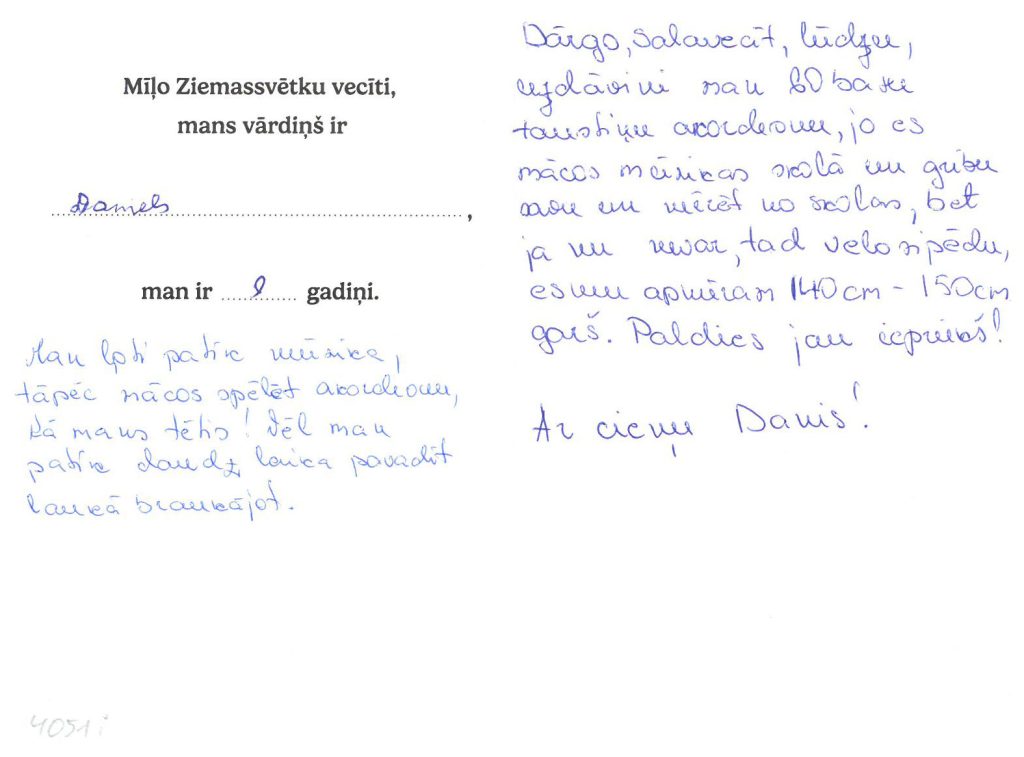 Mīļo Ziemassvētku vecīti,
mans vārdiņš ir
Daniels,
man ir 9 gadiņi.
Man ļoti patīk mūzika,
tāpēc mācos spēlēt akordeonu,
kā mans tētis! Vēl man
patīk daudz laika pavadīt
laukā braukājot.
4051 i
Dārgo, Salavecīt, lūdzu,
uzdāvini man 60 basu
taustiņu akordeonu, jo es
mācos mūzikas skolā un gribu
savu un nīrēt no skolas, bet
ja nu nevar, tad velosipēdu,
esmu apmēram 140cm - 150cm
garš. Paldies jau iepriekš!
Ar cieņu Danis!